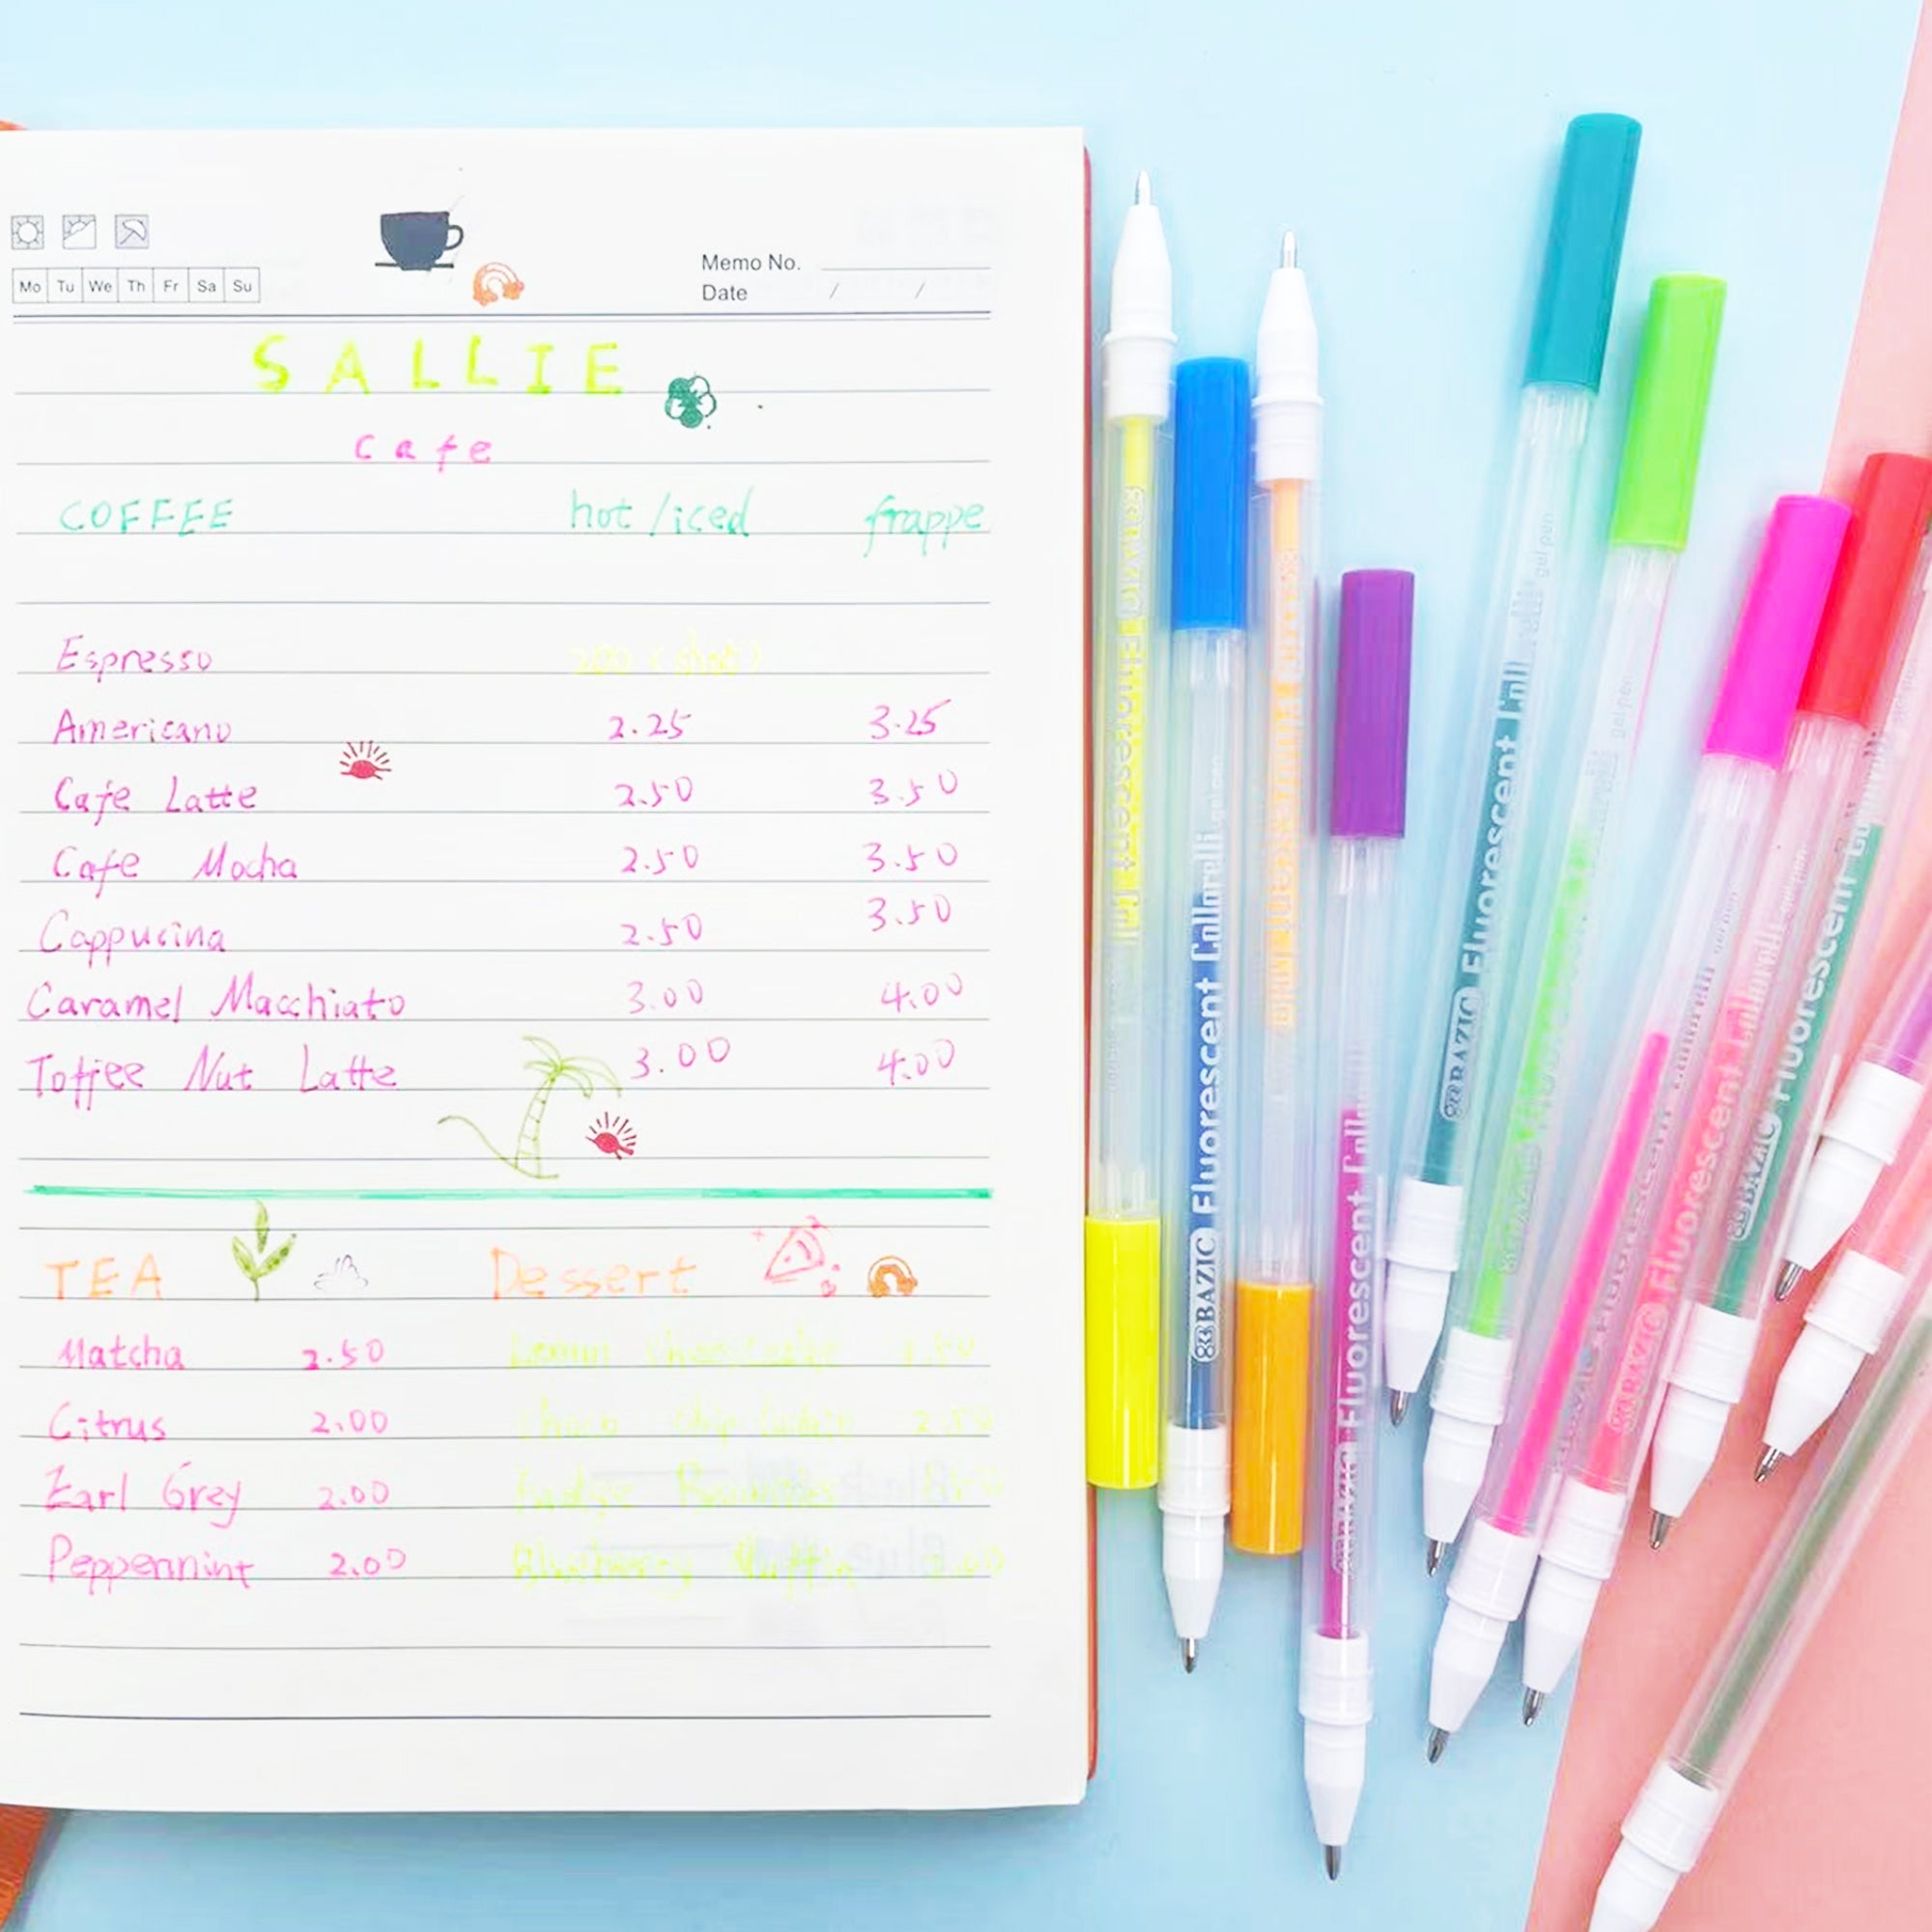 Mo Tu We Th Fr Sa Su
Memo No.
Date / /
SALLIE
Cafe
COFFEE hot/iced frappe
Espresso
Americano 2.25 3.25
Cafe Latte 2.50 3.50
Cafe Mocha 2.50 3.50
Cappucina 2.50 3.50
Caramel Macchiato 3.00 4.00
Toffee Nut Latte 3.00 4.00
TEA Dessert
Matcha 2.50
Citrus 2.00 Choco Chip
Earl Grey 2.00 Fudge Brownies
Peppermint 2.00 Blueberry Muffin
Fluorescent
BAZIC Fluorescent Collorelli gel pen
BAZIC Fluorescent
BAZIC Fluorescent gel pen
gel pen
BAZIC Fluorescent
BAZIC Fluorescent